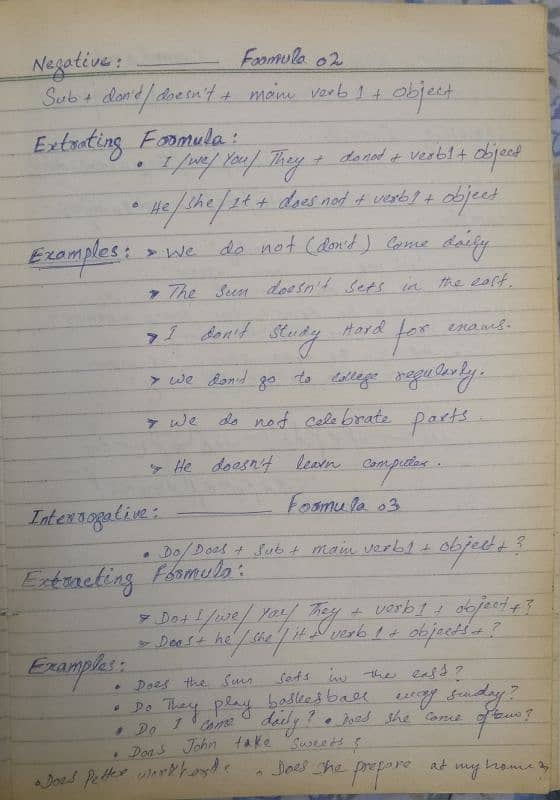 Negative: ——— Formula 02
Sub + don't/doesn't + main verb 1 + object
Extrating Formula:
• I/we/You/They + donot + verb1 + object
• He/She/It + does not + verb1 + object
Examples: ➤ We do not (don't) come daily
➤ The Sun doesn't sets in the east.
➤ I don't study Hard for exams.
➤ We don't go to college regularly.
➤ We do not celebrate parts.
➤ He doesn't learn computer.
Interrogative: ——— Formula 03
• Do/Does + Sub + main verb1 + object + ?
Extracting Formula:
➤ Do + I/we/You/They + verb1 + object + ?
➤ Does + he/she/it + verb 1 + objects + ?
Examples:
• Does the Sun sets in the east?
• Do They play every Sunday?
• Do I come daily? • Does she come often?
• Does John take sweets?
• Does • Does she prepare at my home